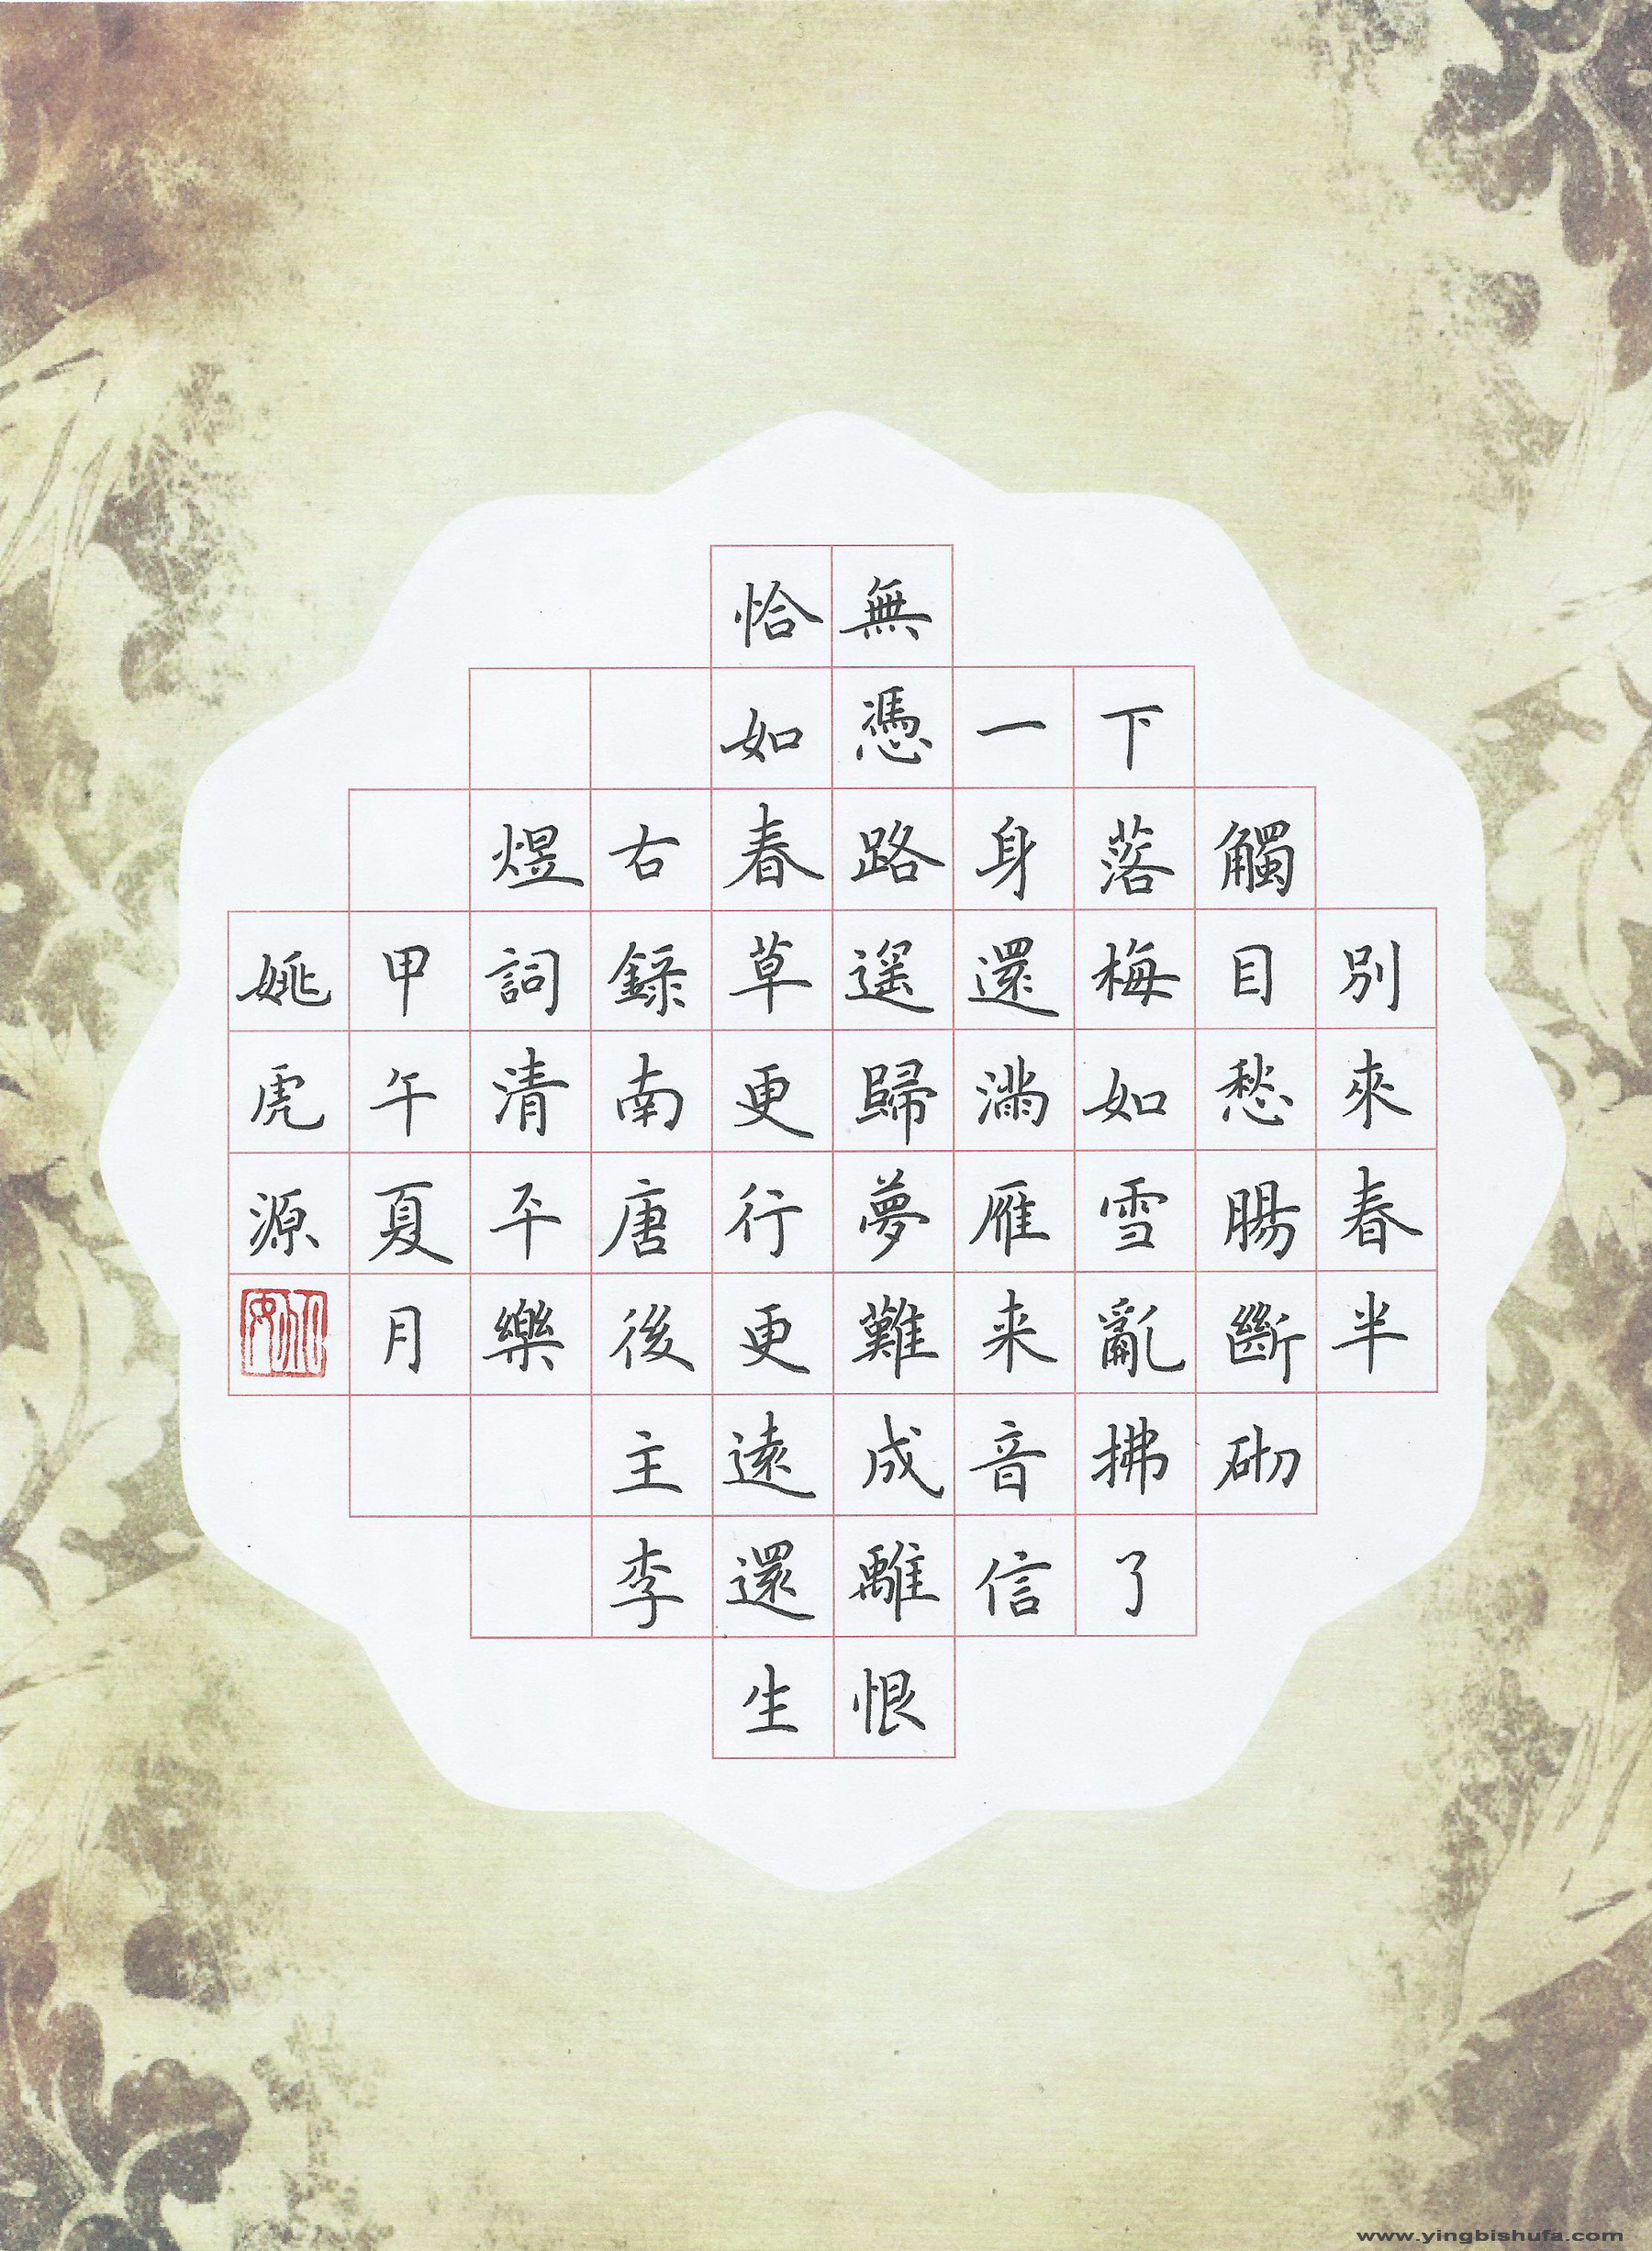 別來春半
觸目愁腸斷砌
下落梅如雪亂拂了
一身還滿雁来音信
無憑路遥歸夢難成離恨
恰如春草更行更遠還生
右錄南唐後主李
煜詞清平樂
甲午夏月
姚虎源
www.yingbishufa.com